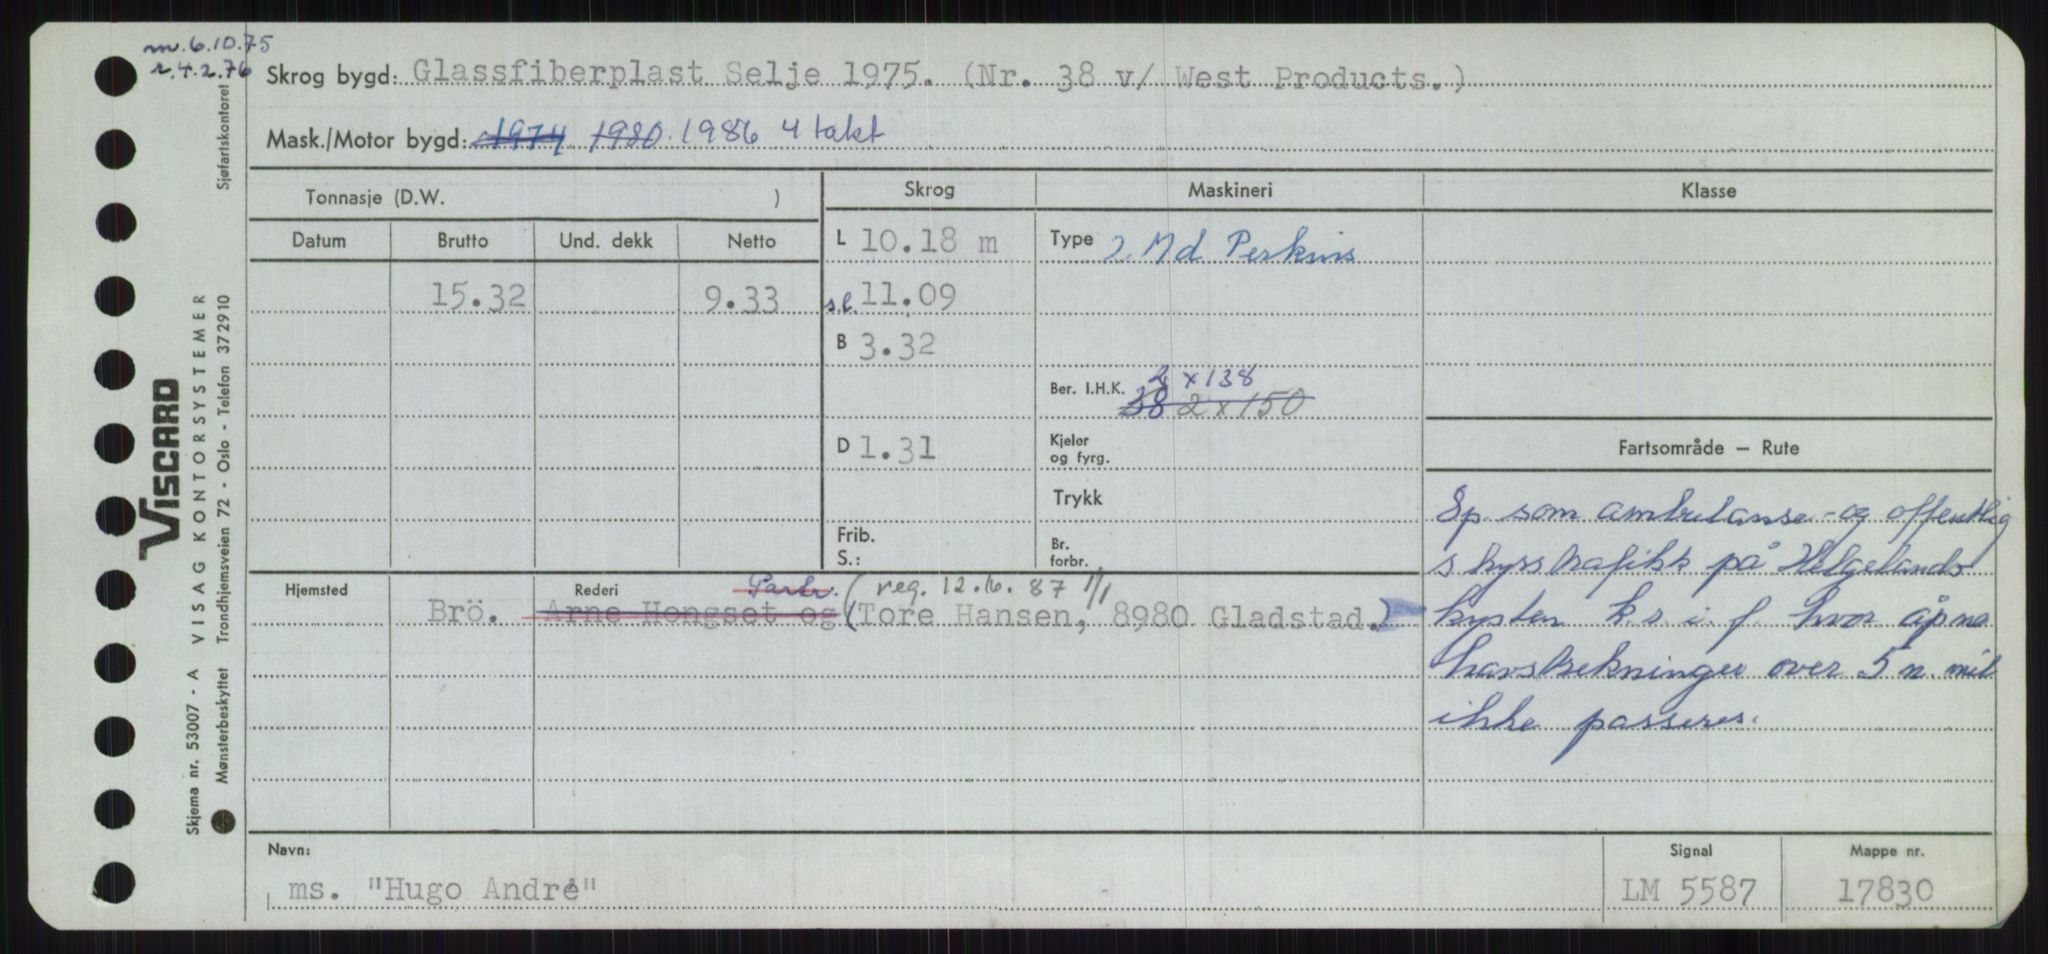 m. 6.10.75
r. 4.2.76
Skrog bygd: Glassfiberplast Selje 1975. (Nr. 38 v/ West Products.)
Mask./Motor bygd: 1974 1980 1986 4 takt
Tonnasje (D.W. )
Skrog
Maskineri
Klasse
Datum
Brutto
Und. dekk
Netto
L 10.18 m
Type 2 Md Perkins
15.32
9.33
s.l. 11.09
B 3.32
2 x 138
Ber. I.H.K. 38 2 x 150
D 1.31
Kjeler
og fyrg.
Trykk
Frib.
S.:
Br.
forbr.
Fartsområde – Rute
Sp som ambulanse- og offentlig
skysstrafikk på Helgelands
kysten k.s.i.f. hvor åpne
havstrekninger over 5 n. mil
ikke passeres.
Hjemsted
Rederi
Partr. (reg. 12.6.87 1/1
Brö. Arne Hongset og (Tore Hansen, 8980 Gladstad.)
Navn:
ms. "Hugo André"
Signal
LM 5587
Mappe nr.
17830
Sjøfartskontoret
VISCARD
VISAG KONTORSYSTEMER
Trondhjemsveien 72 - Oslo - Telefon 372910
Skjema nr. 53007 - A
Mønsterbeskyttet